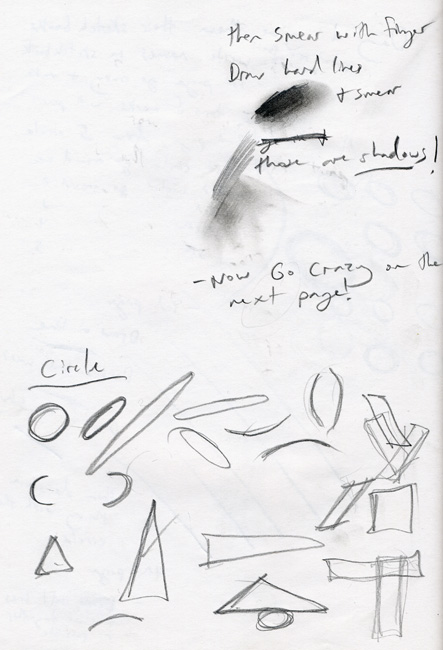 then smear with finger
Draw hard lines
+ smear
these are shadows!
- Now Go Crazy on the
next page!
Circle